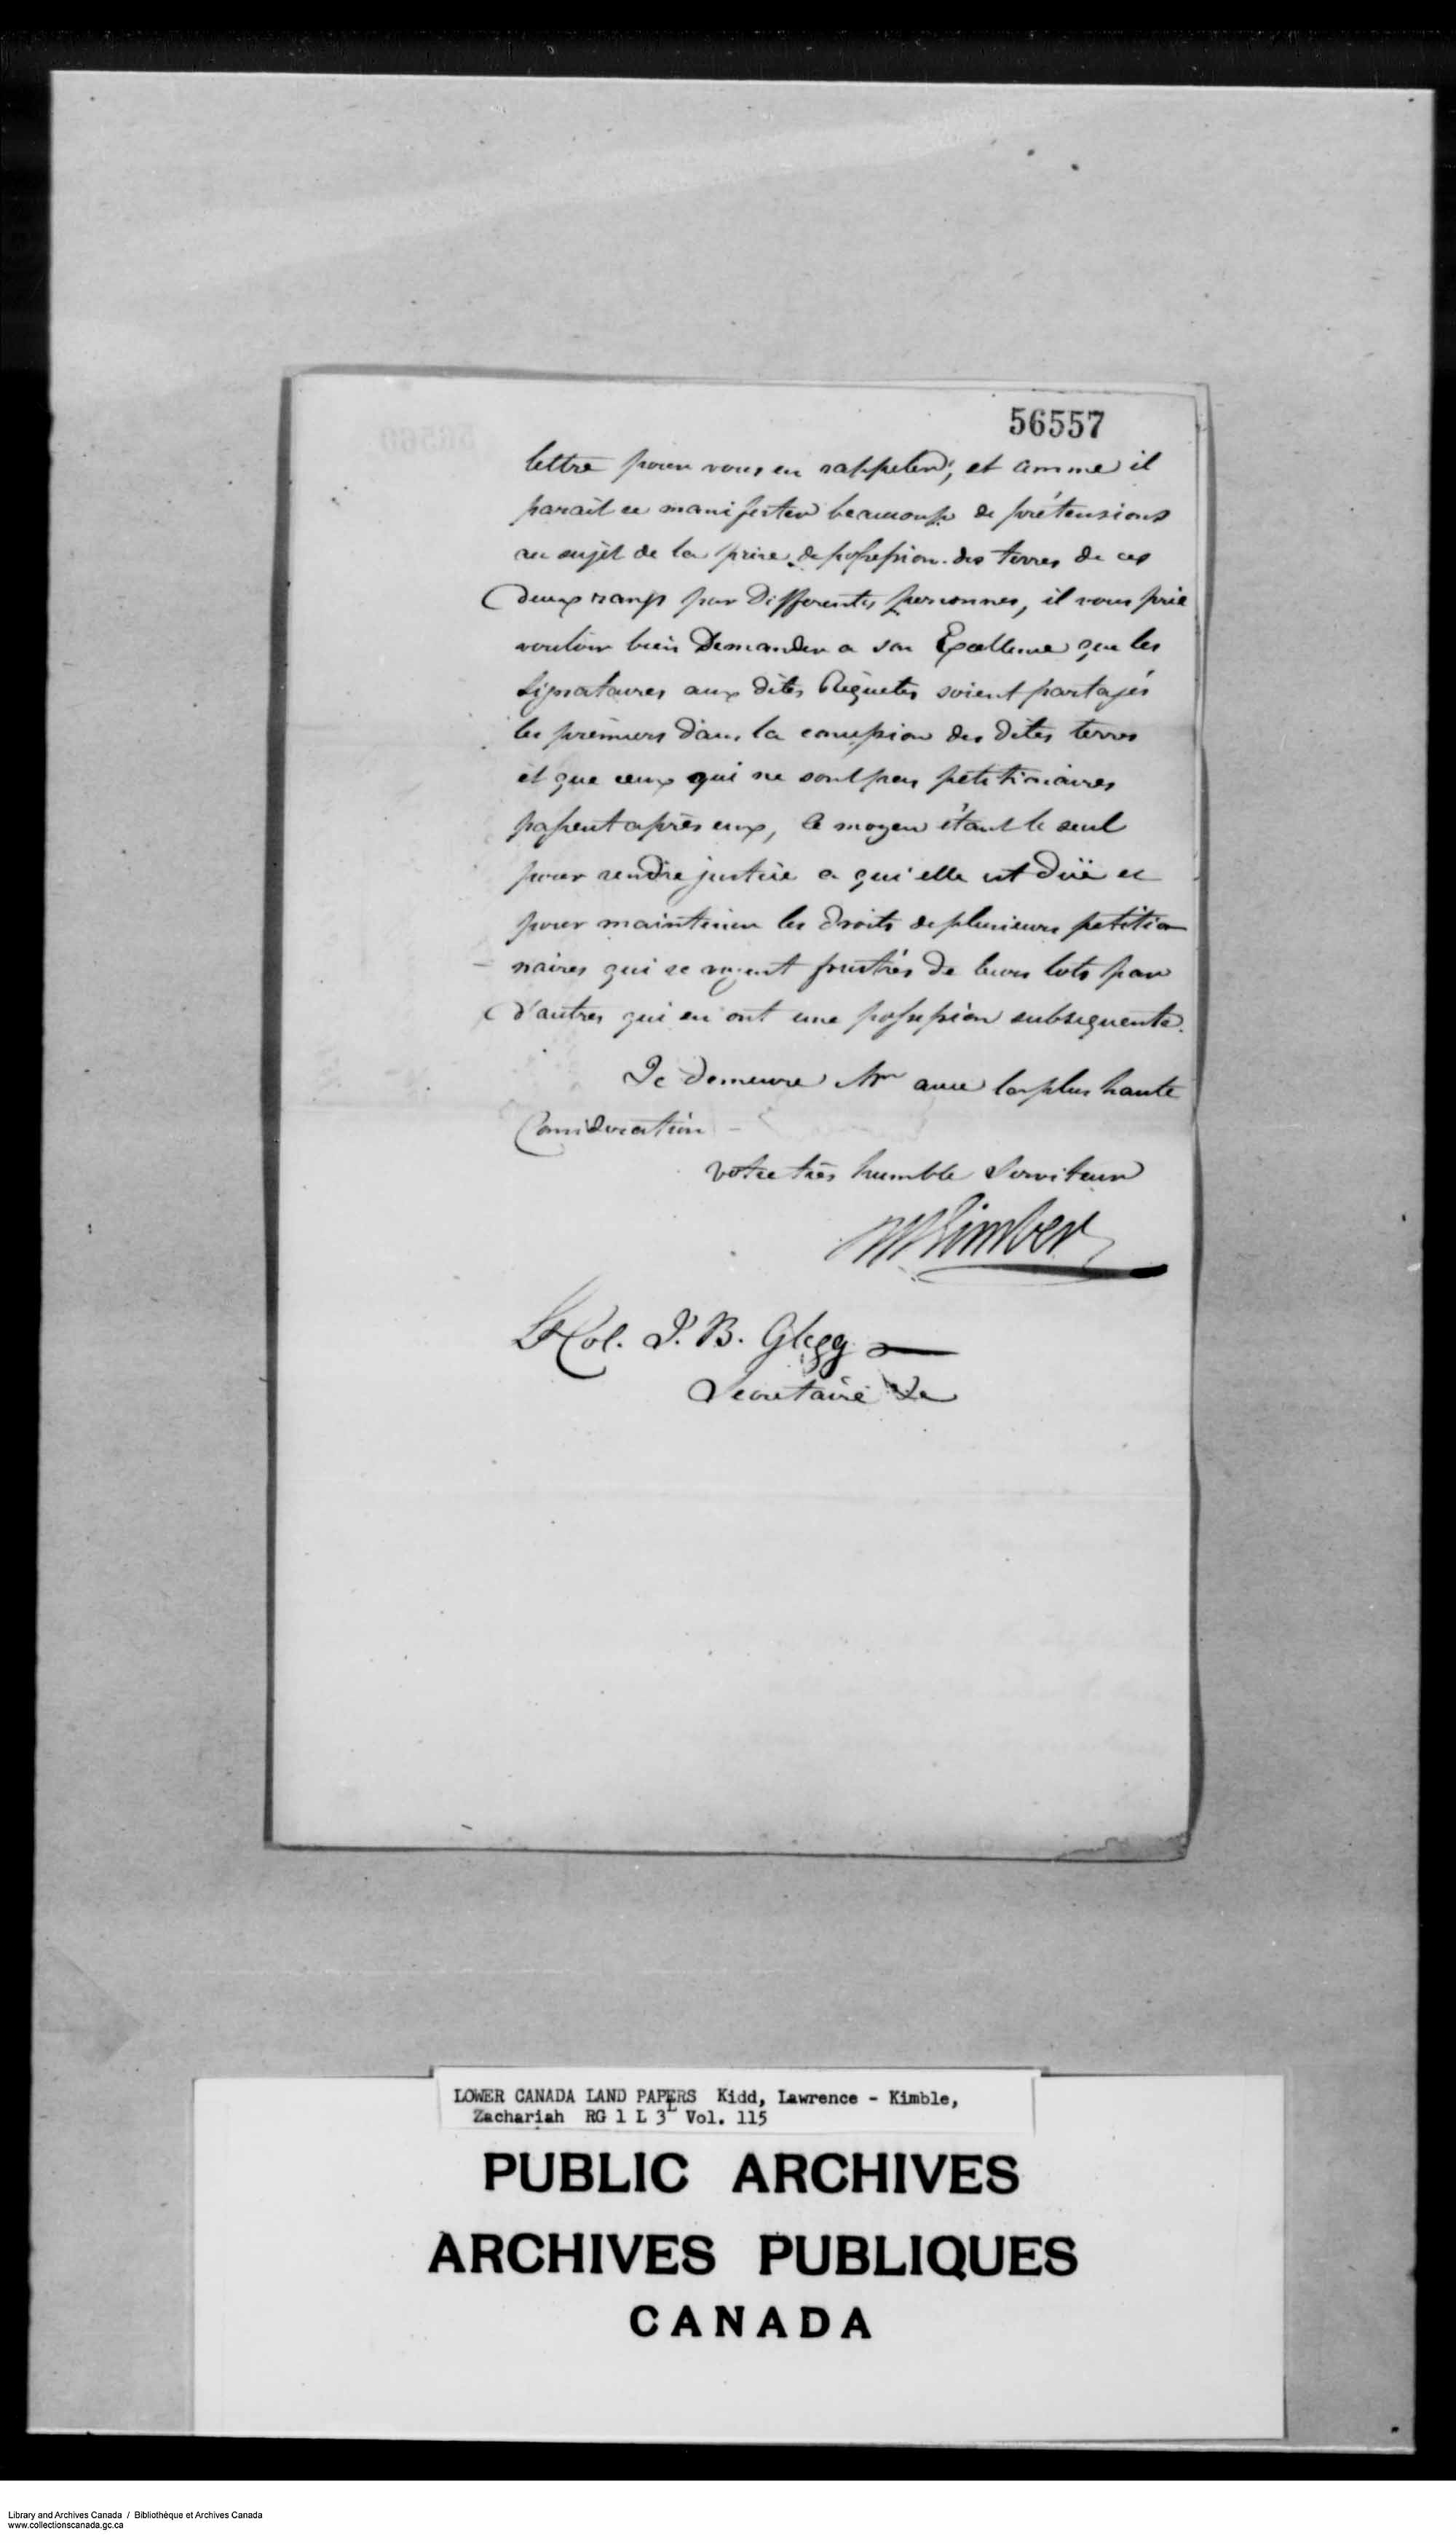 56557
lettre pour vous en rappeler, et comme il
parait se manifester beaucoup de prétensions
au sujèt de la prise de possession des terres de ces
deux rangs par differentes personnes, il vous prie
vouloir bien demander a son Excellence que les
signataires aux dites Réquetes soient partagés
les premiers dans la concession des dites terres
et que ceux qui ne sont pas petitionaires
passent après eux, ce moyen étant le seul
pour rendre justice a qui elle est düe et
pour maintenir les droits de plusieurs petition
-naires qui se voyent frustrés de leurs lots par
d'autres qui en ont une possession subsequente.
Je demeure Mr avec la plus haute
Consideration -
votre très humble Serviteur
Kimber
Lt Col. J. B. Glegg
Secretaire &c
LOWER CANADA LAND PAPERS Kidd, Lawrence - Kimble,
Zachariah RG 1 L 3L Vol. 115
PUBLIC ARCHIVES
ARCHIVES PUBLIQUES
CANADA
Library and Archives Canada / Bibliothèque et Archives Canada
www.collectionscanada.gc.ca